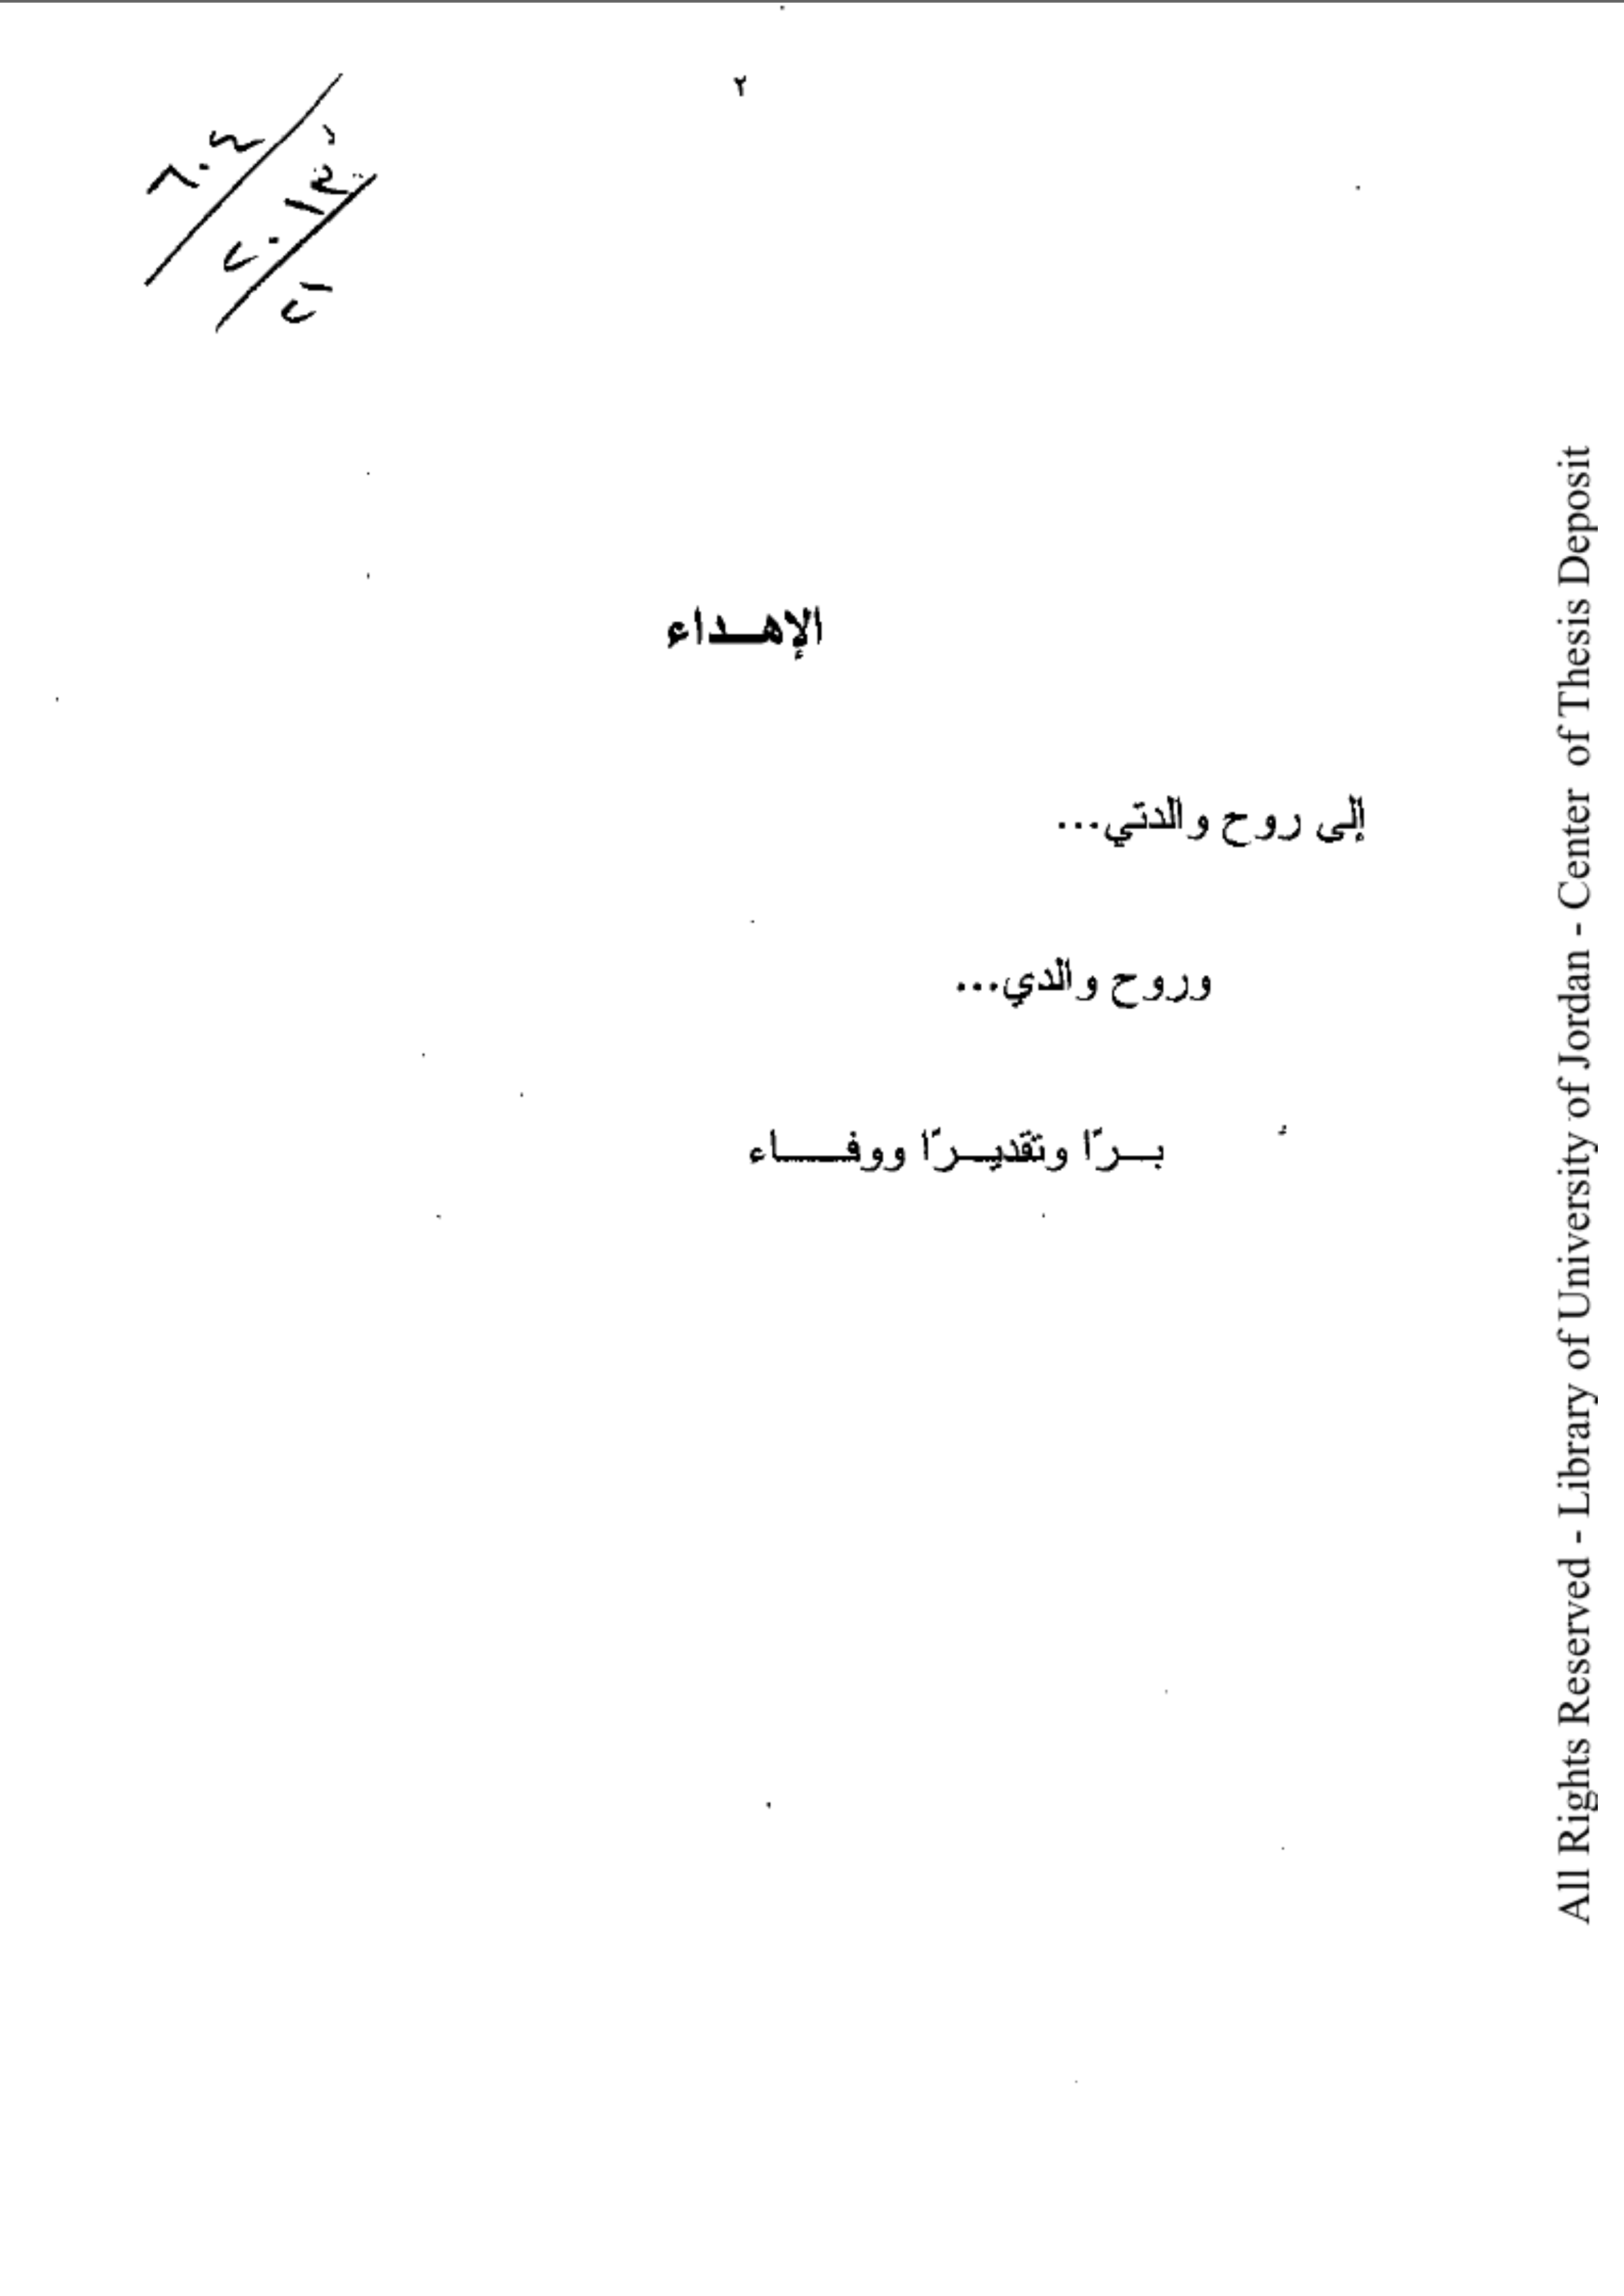 ٢
الإهـداء
إلى روح والدتي...
وروح والدي...
بـرًا وتقديـرًا ووفــاء
All Rights Reserved - Library of University of Jordan - Center of Thesis Deposit